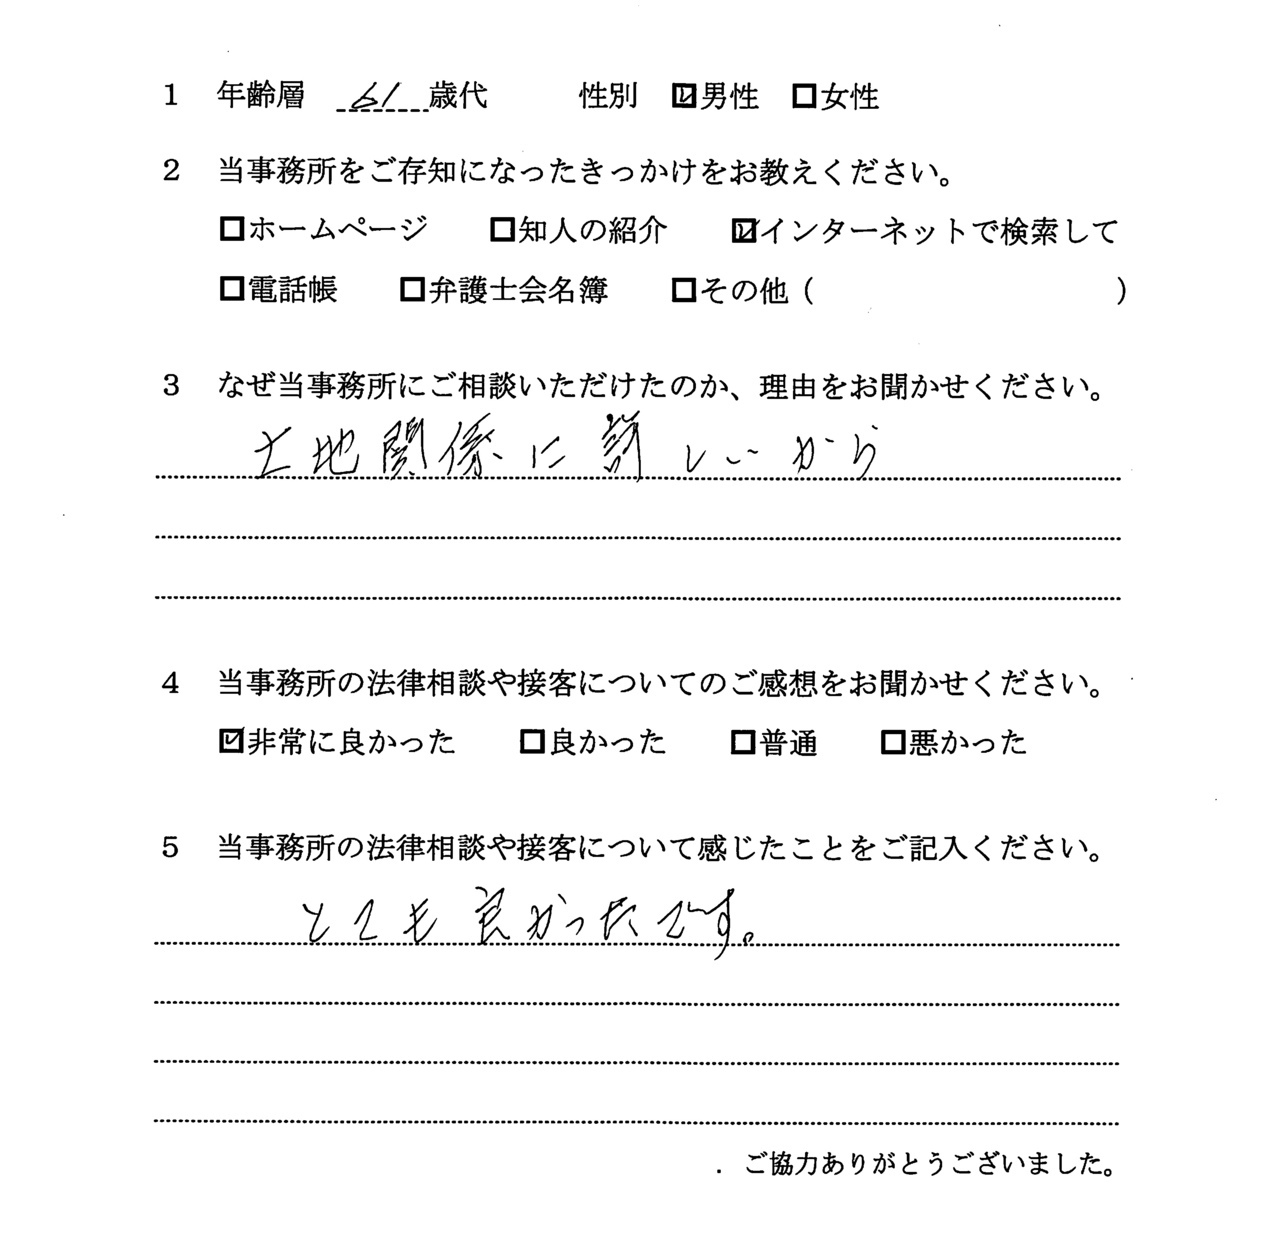 1 年齢層 61 歳代 性別 ☑男性 □女性
2 当事務所をご存知になったきっかけをお教えください。
□ホームページ □知人の紹介 ☑インターネットで検索して
□電話帳 □弁護士会名簿 □その他（ ）
3 なぜ当事務所にご相談いただけたのか、理由をお聞かせください。
土地関係に詳しいから
4 当事務所の法律相談や接客についてのご感想をお聞かせください。
☑非常に良かった □良かった □普通 □悪かった
5 当事務所の法律相談や接客について感じたことをご記入ください。
とても良かったです。
ご協力ありがとうございました。